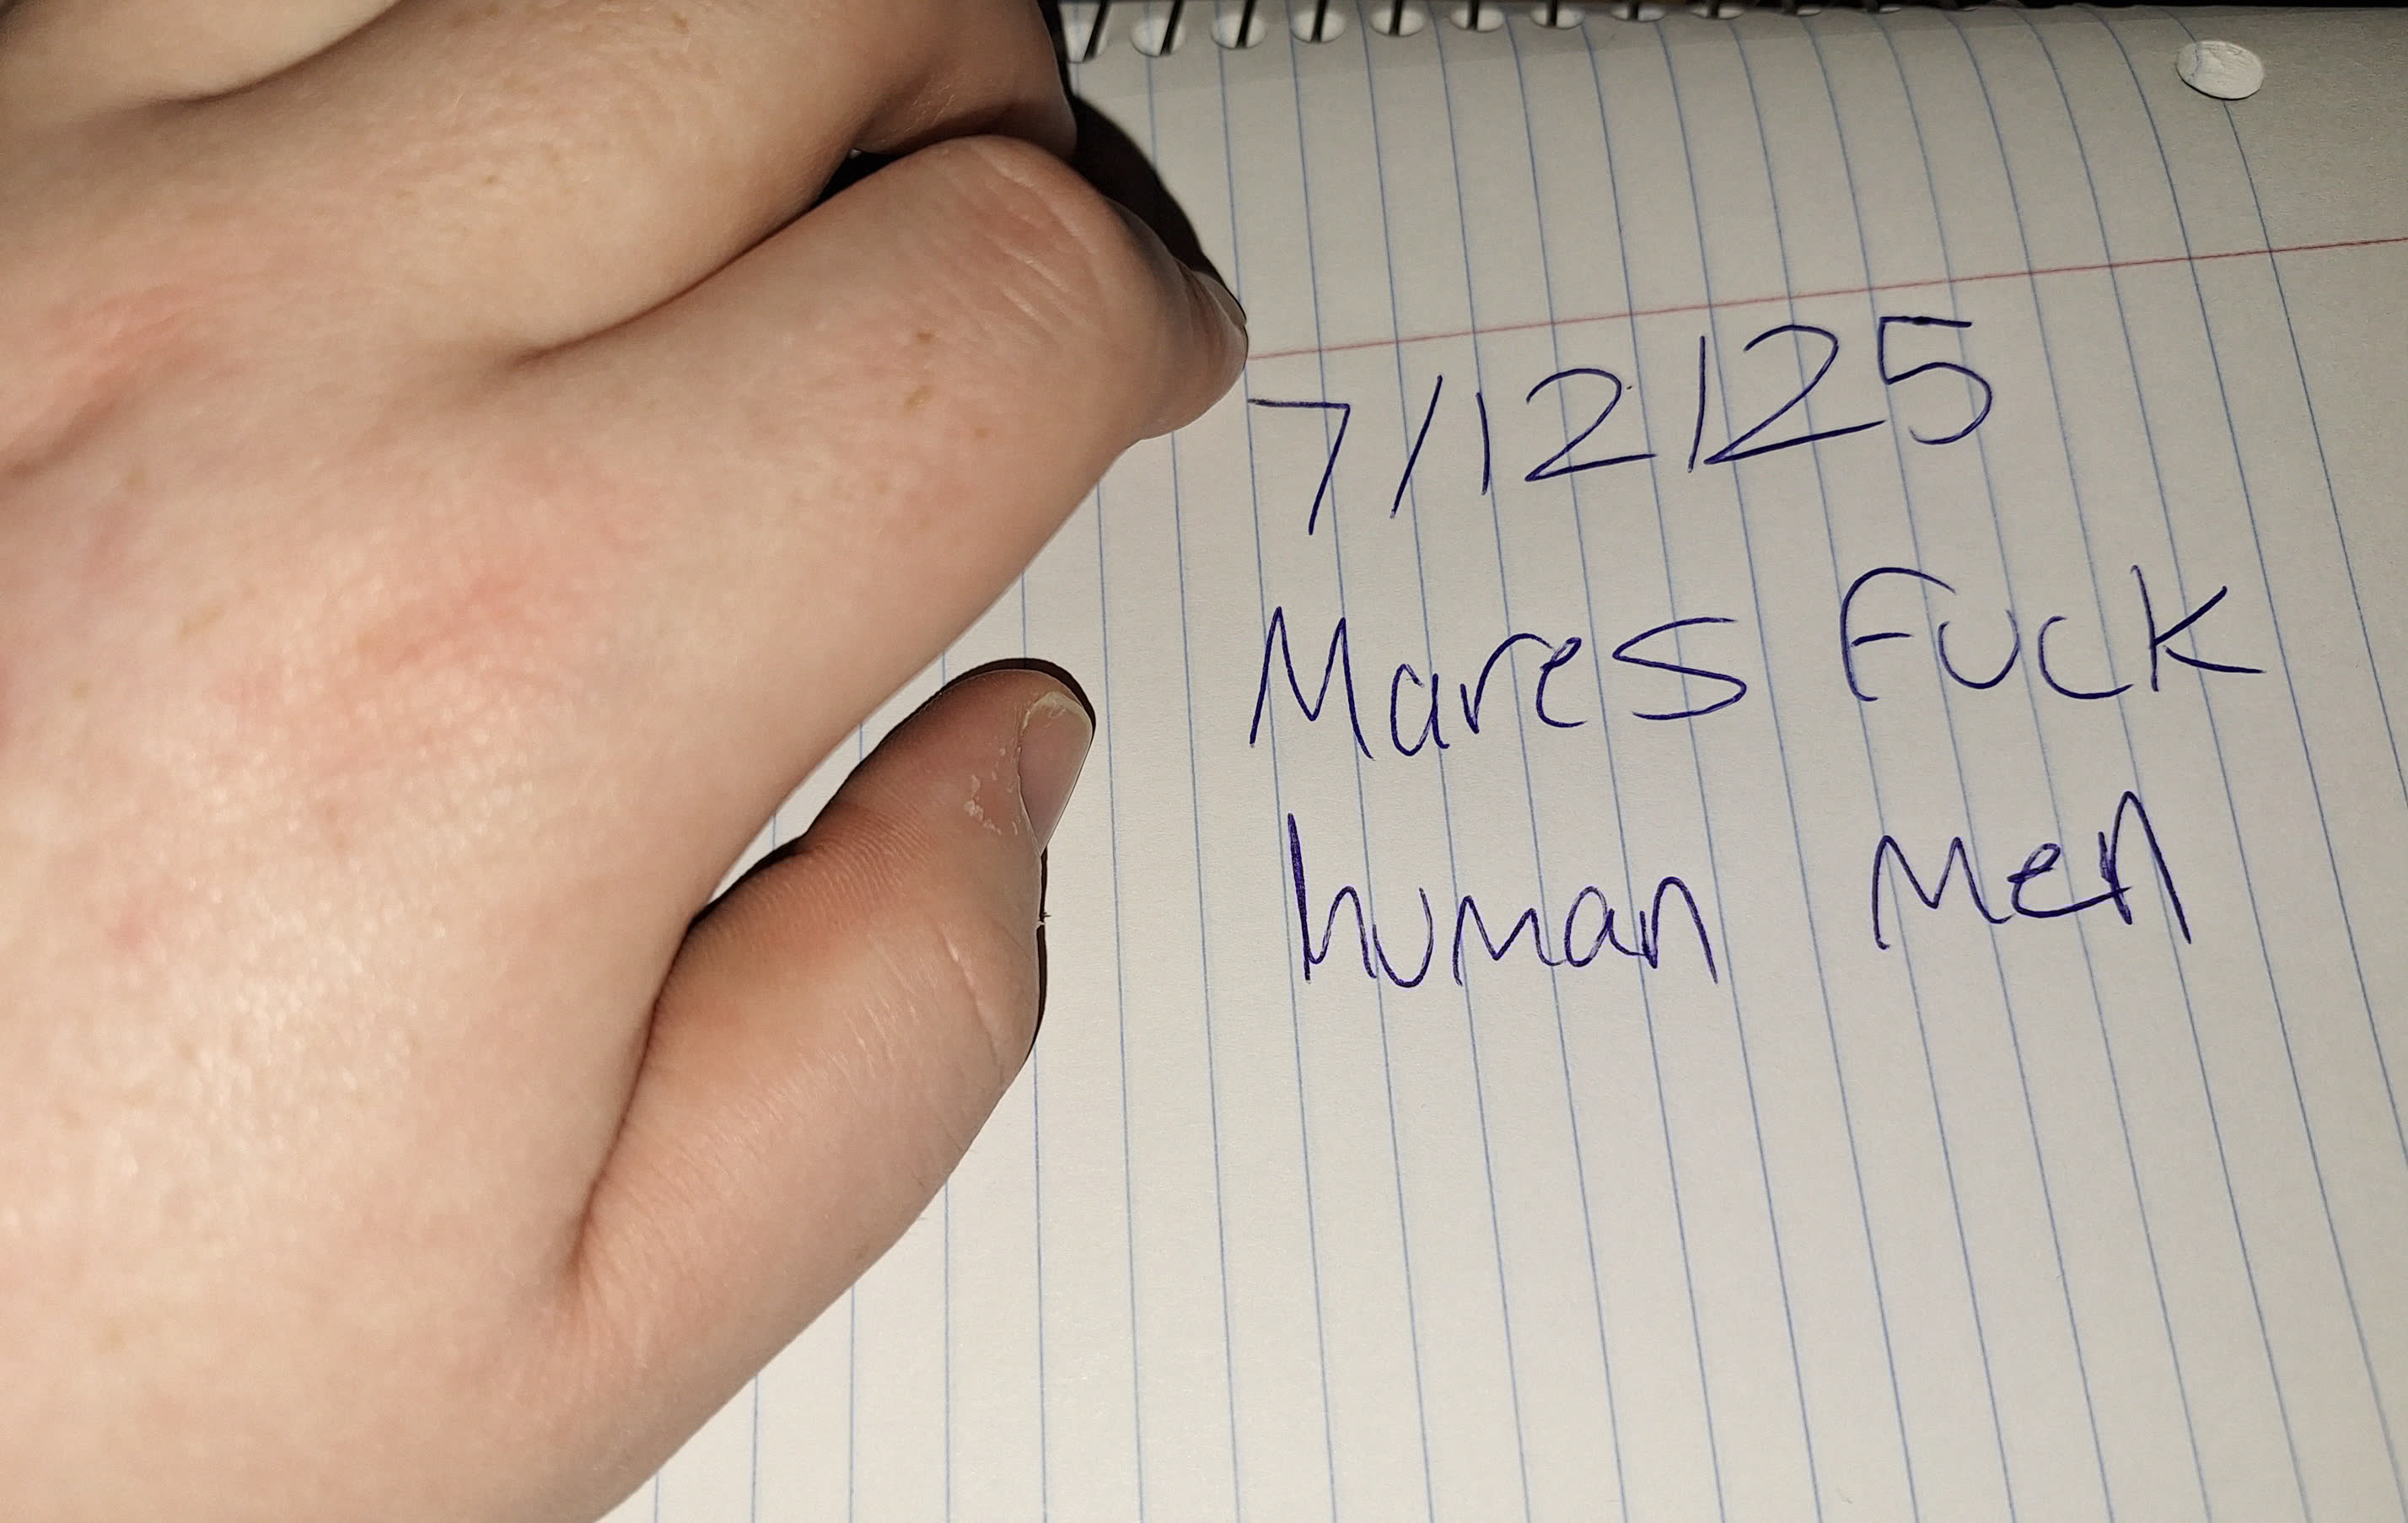 7/12/25
Mares Fuck
human Men